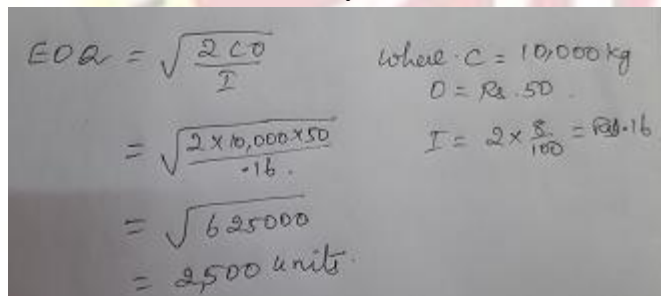 EOQ = √(2CO / I)
where. C = 10,000 kg
O = Rs. 50.
I = 2 × 8/100 = Rs .16
= √(2 × 10,000 × 50 / .16.)
= √625000
= 2,500 units.